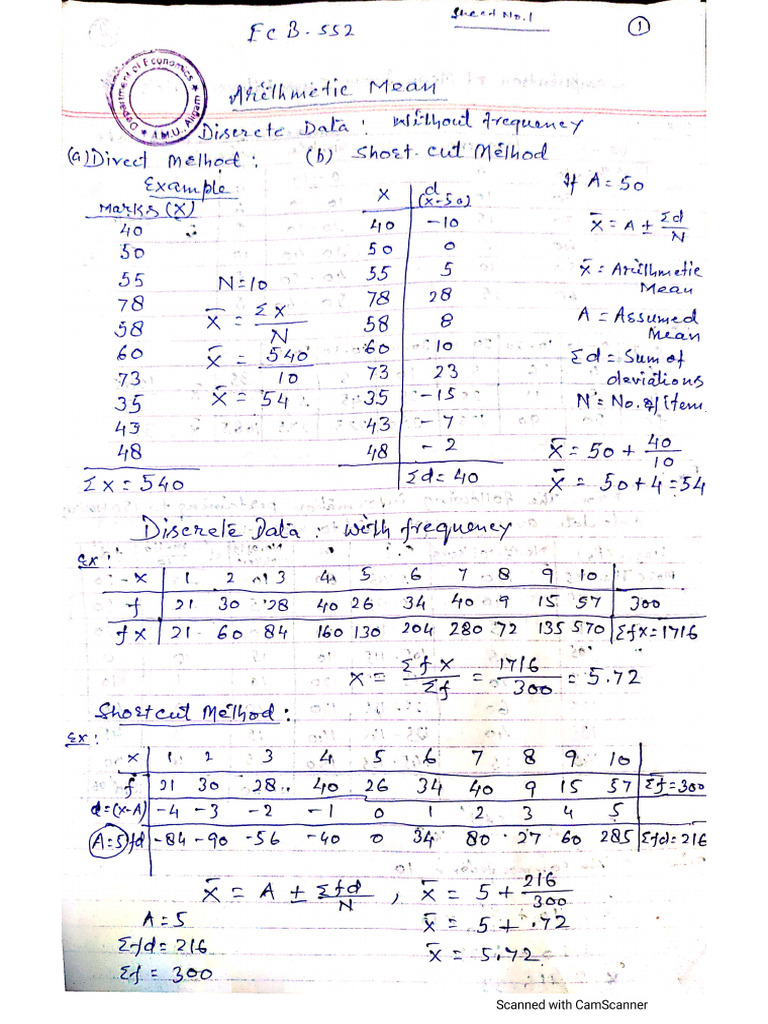 Sheet No.1
1
EcB-552
Department of Economics ★ A.M.U., Aligarh ★
Arithmetic Mean
Discrete Data: Without frequency
(a) Direct Method: (b) Short-cut Method
Example X d (x-50) If A=50
Marks (X)
40 40 -10 X̄ = A ± Σd/N
50 50 0
55 N=10 55 5 X̄ = Arithmetic Mean
78 X̄ = ΣX/N 78 28
58 58 8 A = Assumed Mean
60 X̄ = 540/10 60 10 Σd = Sum of deviations
73 73 23
35 X̄ = 54 35 -15 N = No. of Item
43 43 -7
48 48 -2 X̄ = 50 + 40/10
Σx = 540 Σd = 40 X̄ = 50+4 = 54
Discrete Data: With frequency
Ex:
X 1 2 3 4 5 6 7 8 9 10
f 21 30 28 40 26 34 40 9 15 57 300
fX 21 60 84 160 130 204 280 72 135 570 ΣfX=1716
X = ΣfX/Σf = 1716/300 = 5.72
Shortcut Method:
Ex:
X 1 2 3 4 5 6 7 8 9 10
f 21 30 28 40 26 34 40 9 15 57 Σf=300
d=(X-A) -4 -3 -2 -1 0 1 2 3 4 5
(A=5) fd -84 -90 -56 -40 0 34 80 27 60 285 Σfd=216
X̄ = A ± Σfd/N , X̄ = 5 + 216/300
A=5 X̄ = 5 + .72
Σfd=216 X̄ = 5.72
Σf = 300
Scanned with CamScanner